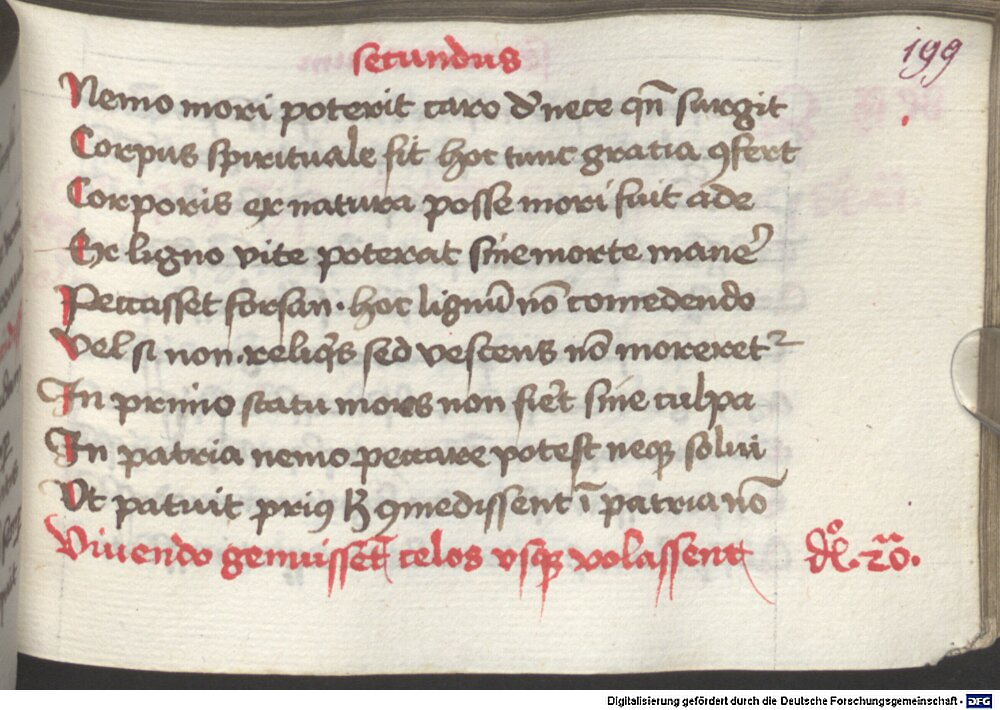 secundus
199
Nemo mori poterit caro d' nece qn̄ surgit
Corpus spirituale sit hoc tunc gratia ꝯfert
Corporis ex natura posse mori fuit ade
Ex ligno vite poterat sine morte maner̄
Peccasset forsan · hoc lignū nō comedendo
Vel si non reliqͥs sed vescens nō moreretᷣ
In primo statu mors non fier̄t sine culpa
In patria nemo peccare potest neqꝫ solui
Vt patuit priꝰ ꝯmedissent ī patria nō
Viuendo genuissēt celos vsqꝫ volassent
Digitalisierung gefördert durch die Deutsche Forschungsgemeinschaft - DFG